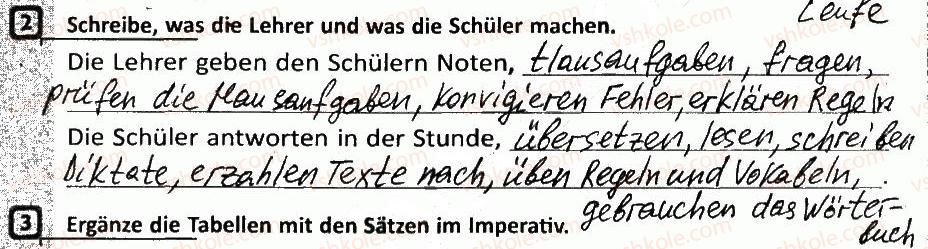 Leute
2 Schreibe, was die Lehrer und was die Schüler machen.
Die Lehrer geben den Schülern Noten, Hausaufgaben, fragen,
prüfen die Hausaufgaben, konvigieren Fehler, erklären Regeln
Die Schüler antworten in der Stunde, übersetzen, lesen, schreiben
Diktate, erzahlen Texte nach, üben Regeln und Vokabeln,
gebrauchen das Wörter-
3 Ergänze die Tabellen mit den Sätzen im Imperativ.
buch